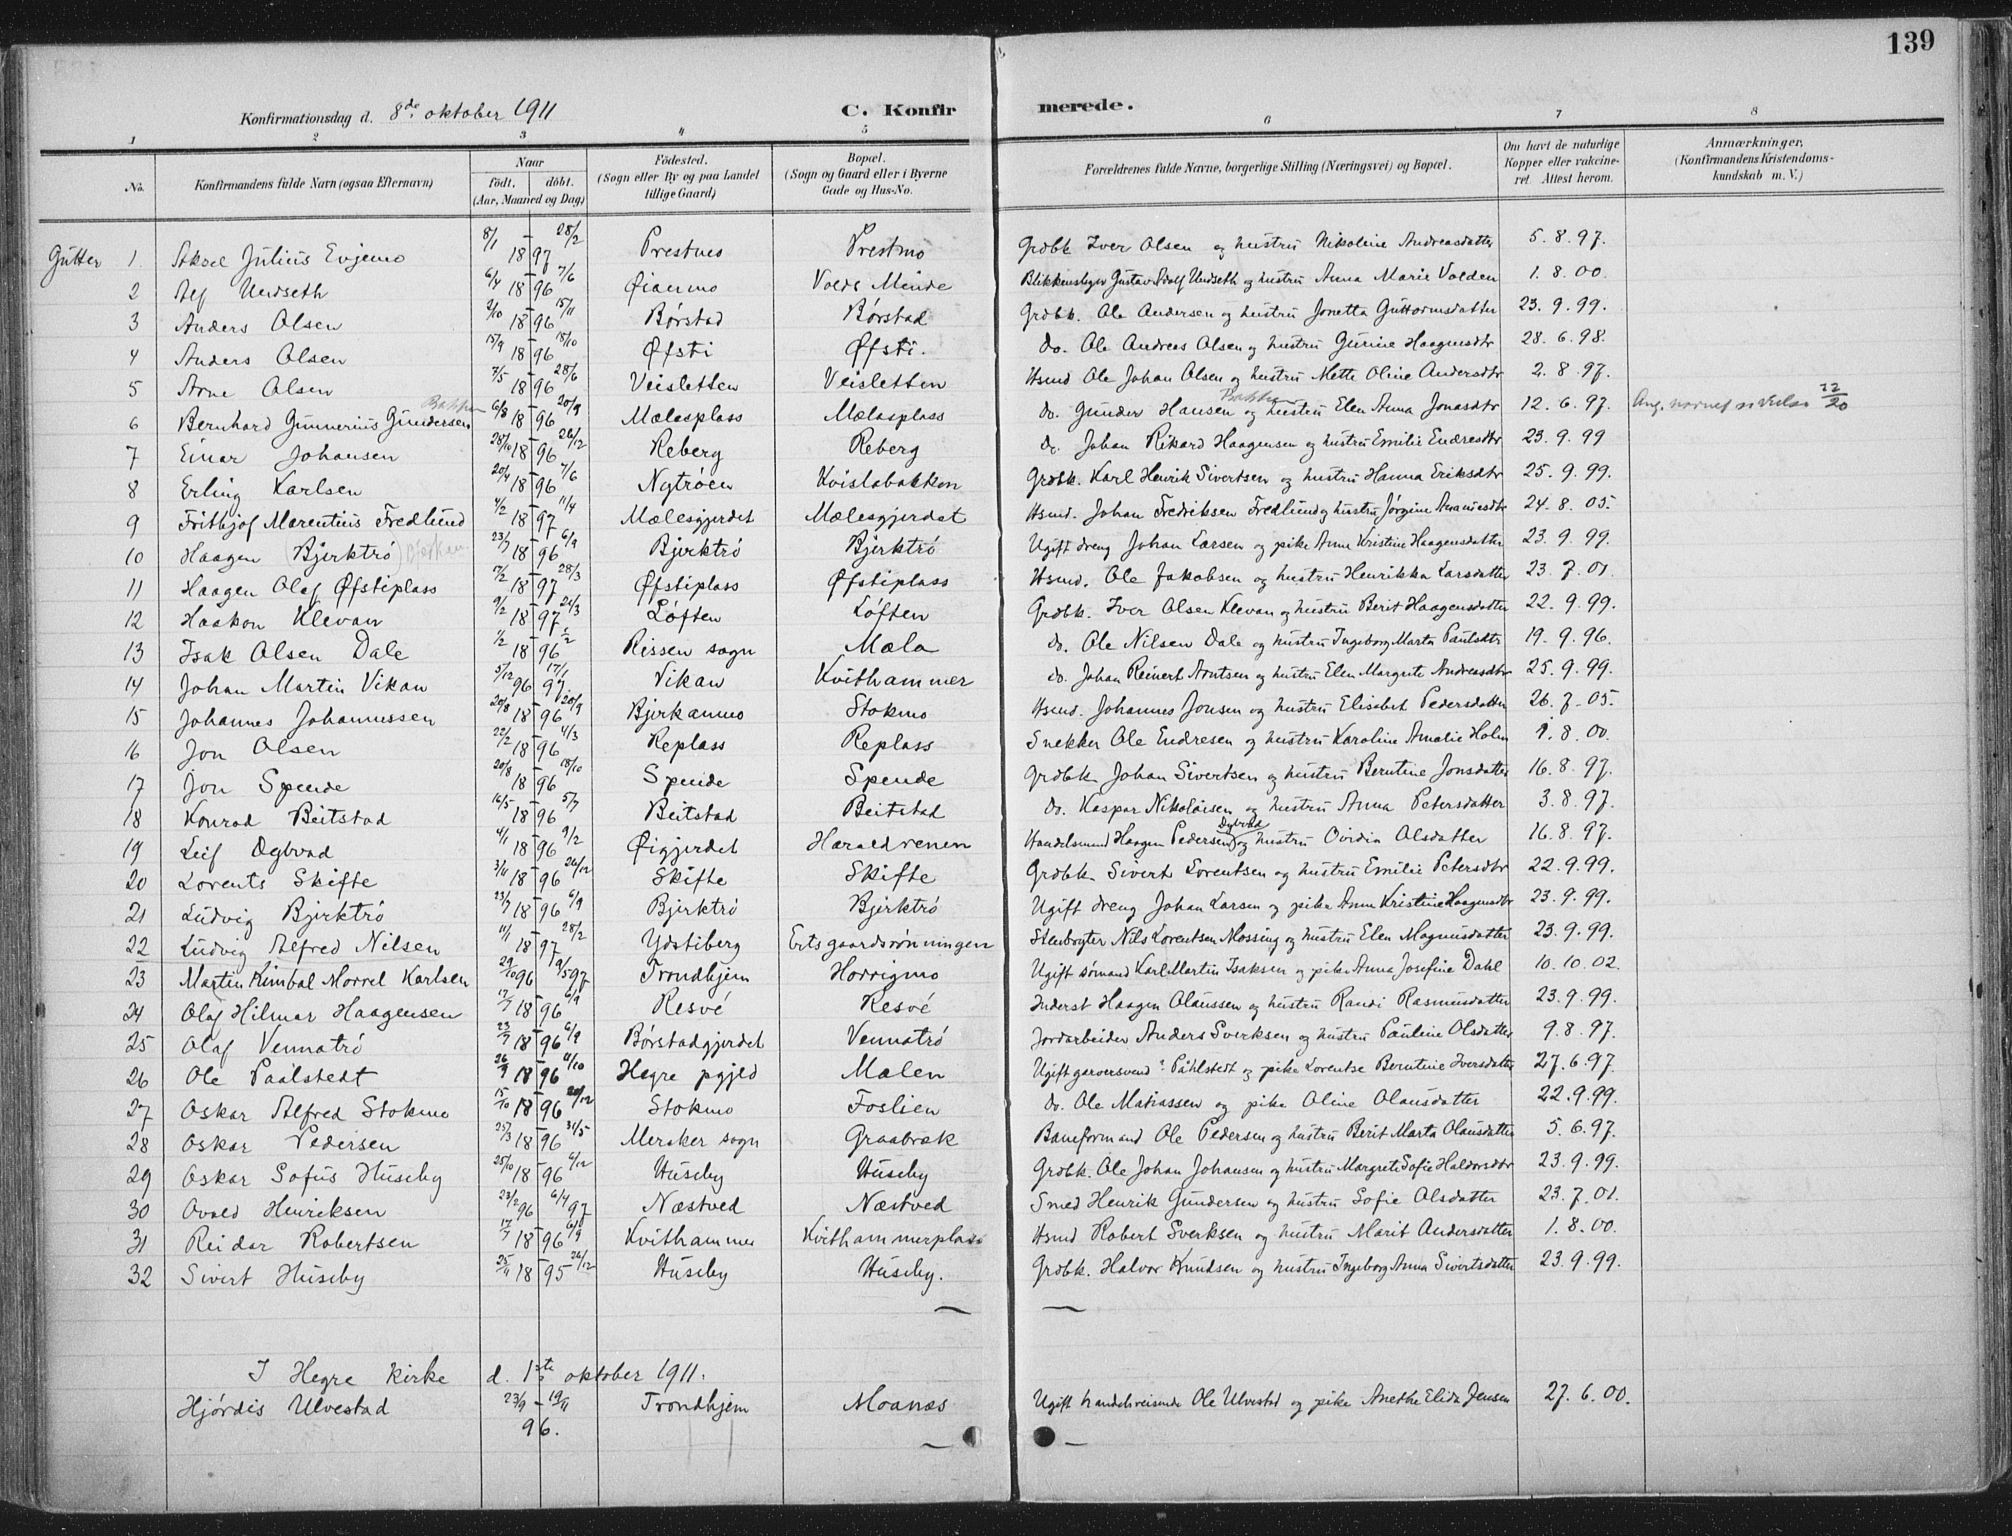 139
Konfirmationsdag d. 8de oktober 1911 C. Konfirmerede.
1 2 3 4 5 6 7 8
No. Konfirmandens fulde Navn (ogsaa Efternavn) Naar födt. döbt. (Aar, Maaned og Dag) Födested. (Sogn eller By og paa Landet tillige Gaard) Bopæl. (Sogn og Gaard eller i Byerne Gade og Hus-No. Forældrenes fulde Navne, borgerlige Stilling (Næringsvei) og Bopæl. Om havt de naturlige Kopper eller vakcineret. Attest herom. Anmærkninger, (Konfirmandens Kristendomskundskab m. V.)
Gutter 1 Aksel Julius Evjemo 8/1 - 28/2 1897 Prestmo Prestmo Grdbk Iver Olsen og hustru Nikoline Andreasdatter 5.8.97.
2 Alf Undseth 6/4 - 7/6 1896 Øianmo Volds Minde Blikkenslager Gustav Adolf Undseth og hustru Anna Marie Volden 1.8.00.
3 Anders Olsen 2/10 - 15/11 1896 Børstad Børstad Grdbk. Ole Andersen og hustru Jonetta Guttormsdatter 23.9.99.
4 Anders Olsen 15/9 - 18/10 1896 Øfsti Øfsti. Do. Ole Andreas Olsen og hustru Gurine Haagensdtr 28.6.98.
5 Arne Olsen 7/5 - 28/6 1896 Veisletten Veisletten Hsmd Ole Johan Olsen og hustru Mette Oline Andersdtr 2.8.97.
6 Bernhard Gunnerius Gundersen Bakken 6/8 - 20/9 1896 Mælesplass Mælasplass Do. Gunder Hansen Bakken og hustru Elen Anna Jonasdtr 12.6.97.
7 Einar Johansen 28/10 - 26/12 1896 Reberg Reberg Do. Johan Rikard Haagensen og hustru Emilie Endresdtr 23.9.99
8 Erling Karlsen 20/4 - 7/6 1896 Nytröen Kvislabakken Grdbk. Karl Henrik Sivertsen og hustru Hanna Eriksdtr 25.9.99.
9 Frithjof Marentius Fredlund 4/2 - 11/4 1897 Mælesgjerdet Mælesgjerdet Hsmd. Johan Fredriksen Fredlund og hustru Jørgine 24.8.05.
10 Haagen (Bjerktrö) 23/7 - 6/9 1896 Bjerktrö Bjerktrö Ugift dreng Johan Larsen og pike Anne Kristine Haagensdatter 23.9.99.
11 Haagen Olaf Øfstiplass 17/2 - 28/3 1897 Øfstiplass Øfstiplass Hsmd. Ole Jakobsen og hustru Henrikka Larsdatter 23.7.01.
12 Haakon Klevan 9/2 - 24/3 1897 Løften Løften Grdbk. Iver Olsen Klevan og hustru Berit Haagensdatter 22.9.99.
13 Isak Olsen Dale 1/2 1896 Rissen sogn Mæla Do. Ole Nilsen Dale og hustru Ingeborg Marta Paulsdtr 19.9.96.
14 Johan Martin Vikan 5/12 96 17/1 97 Vikan Kvithammer Do. Johan Reinert Arntsen og hustru Elen Margrete Andreasdtr 25.9.99.
15 Johannes Johannessen 20/8 - 20/9 1896 Bjerkanmo Stokmo Hsmd. Johannes Jonsen og hustru Elisabet Pedersdatter 26.7.05.
16 Jon Olsen 22/2 - 4/3 1896 Replass Replass Snekker Ole Endresen og hustru Karoline Amalie Holm 1.8.00.
17 Jon Spende 20/8 - 18/10 1896 Spende Spende Grdbk Johan Sivertsen og hustru Berntine Jonsdatter 16.8.97.
18 Konrad Beitstad 16/5 - 5/7 1896 Beitstad Beitstad Do. Kaspar Nikolaisen og hustru Anna Petersdatter 3.8.97.
19 Leif Dybvad 4/1 - 9/2 1896 Øigjerdet Haraldrenen Handelsmand Haagen Pedersen Dybvad og hustru Ovidia Olsdatter 16.8.97.
20 Lorents Skifte 3/11 - 26/12 1896 Skifte Skifte Grdbk. Sivert Lorentsen og hustru Emilie Petersdtr 22.9.99.
21 Ludvig Bjerktrö 23/7 - 6/9 1896 Bjerktrö Bjerktrö Ugift dreng Johan Larsen og pike Anne Kristine Haagensdtr 23.9.99.
22 Ludvig Alfred Nilsen 11/1 - 28/2 1897 Ydstiberg Ertsgaardsrönningen Stenbryter Nils Lorentsen Mossing og hustru Elen Magnusdatter 23.9.99.
23 Martin Kimbal Morrel Karlsen 29/10 96 9/5 97 Trondhjem Horrigmo Ugift sømand Karl Martin Isaksen og pike Anna Josefine Dahl 10.10.02.
24 Olaf Hilmar Haagensen 17/7 - 6/9 1896 Resvé Resvé Inderst Haagen Olaussen og hustru Randi Rasmusdatter 23.9.99.
25 Olaf Vennatrö 23/7 - 6/9 1896 Börstadgjerdet Vennatrö Jordarbeider Anders Sverksen og hustru Pauline Olsdatter 9.8.97.
26 Ole Paalstedt 26/9 - 11/10 1896 Hegre pgjld Mælen Ugift garversvend ? Påhlstedt og pike Lorentse Berntine Iversdatter 27.6.97.
27 Oskar Alfred Stokmo 15/10 - 20/12 1896 Stokmo Foslien Do. Ole Matiassen og pike Oline Olausdatter 22.9.99.
28 Oskar Pedersen 25/3 - 31/5 1896 Meraker sogn Graabræk Baneformand Ole Pedersen og hustru Berit Marta Olausdatter 5.6.97.
29 Oskar Sofus Huseby 25/10 - 6/12 1896 Huseby Huseby Grdbk. Ole Johan Johansen og hustru Margrete Sofie Haldorsdtr 23.9.99.
30 Ovald Henriksen 23/2 96 6/4 97 Næstved Næstved Smed Henrik Gundersen og hustru Sofie Olsdatter 23.7.01.
31 Reidar Robertsen 17/7 - 6/9 1896 Kvithammer Kvithammerplass Hsmd Robert Sverksen og hustru Marit Andersdatter 1.8.00.
32 Sivert Huseby 25/11 - 26/12 1895 Huseby Huseby. Grdbk. Halvor Knudsen og hustru Ingeborg Anna Sivertsdatter 23.9.99.
I Hegre kirke d. 1ste oktober 1911.
Hjördis Ulvestad 23/9 - 19/11 96. Trondhjem Moanæs Ugift handelsreisende Ole Ulvestad og pike Anethe Elida Jensen 27.6.00.